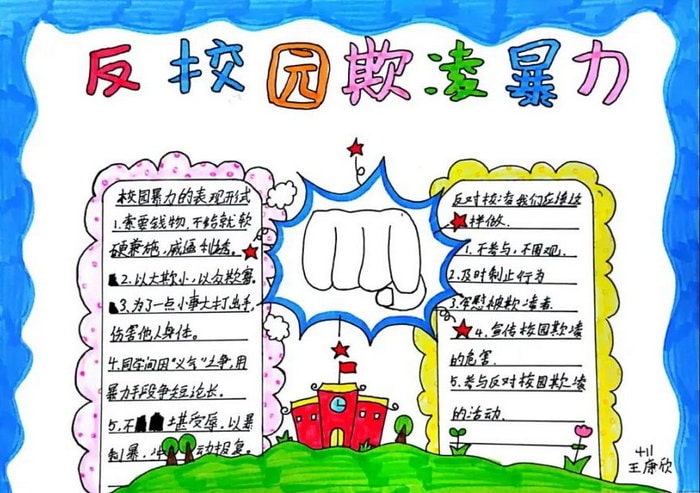 反校园欺凌暴力
校园暴力的表现形式
1.索要钱物,不给就软
硬兼施,威逼利诱。
2.以大欺小,以众欺寡
3.为了一点小事大打出手,
伤害他人身体。
4.同学间因“义气”之争,用
暴力手段争短论长。
5.不堪受辱,以暴
制暴,冲动报复。
反对校凌我们应该这
样做
1.不参与,不围观,
2.及时制止行为
3.安慰被欺凌者
4.宣传校园欺凌
的危害.
5.参与反对校园欺凌
的活动.
王康欣